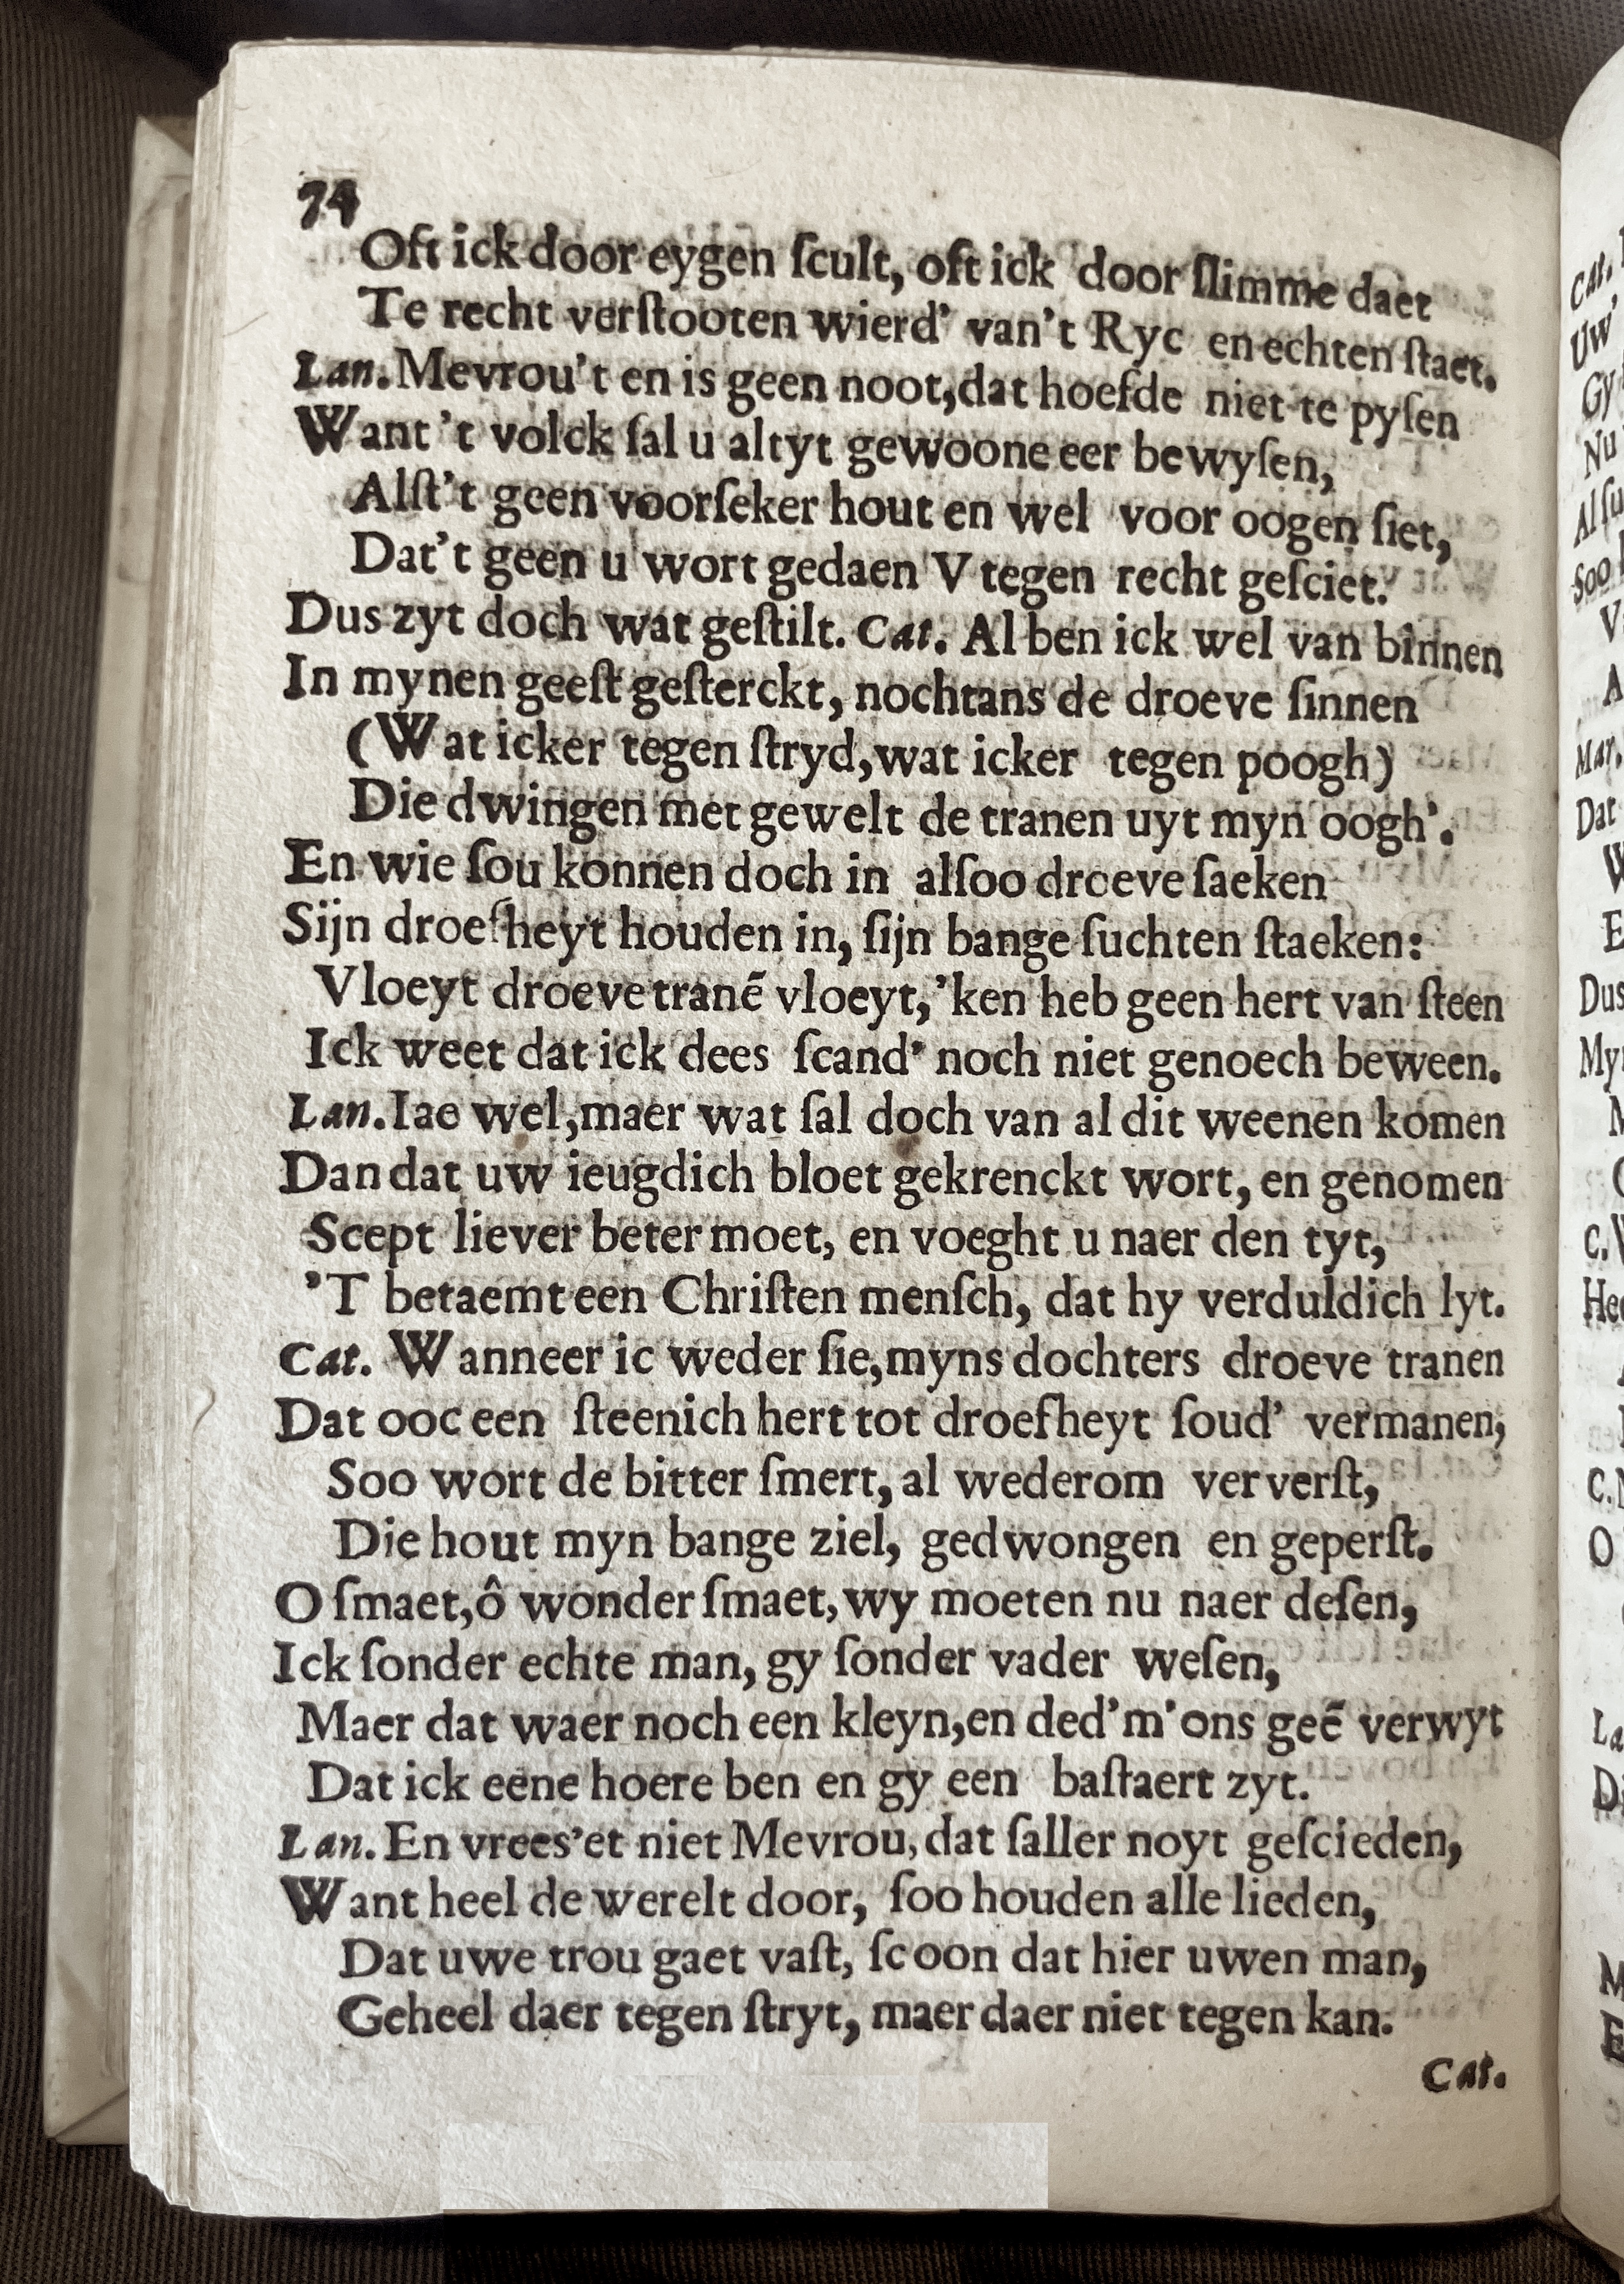 74
Oft ick door eygen ſcult, oft ick door ſlimme daet
Te recht verſtooten wierd' van't Ryc en echten ſtaet.
Lan. Mevrou't en is geen noot, dat hoefde niet te pyſen
Want 't volck ſal u altyt gewoone eer bewyſen,
Alſt't geen voorſeker hout en wel voor oogen ſiet,
Dat't geen u wort gedaen V tegen recht geſciet.
Dus zyt doch wat geſtilt. Cat. Al ben ick wel van binnen
In mynen geeſt geſterckt, nochtans de droeve ſinnen
(Wat icker tegen ſtryd, wat icker tegen poogh)
Die dwingen met gewelt de tranen uyt myn oogh'.
En wie ſou konnen doch in alſoo droeve ſaeken
Sijn droefheyt houden in, ſijn bange ſuchten ſtaeken:
Vloeyt droeve tranē vloeyt, 'ken heb geen hert van ſteen
Ick weet dat ick dees ſcand' noch niet genoech beween.
Lan. Iae wel, maer wat ſal doch van al dit weenen komen
Dan dat uw ieugdich bloet gekrenckt wort, en genomen
Scept liever beter moet, en voeght u naer den tyt,
'T betaemt een Chriſten menſch, dat hy verduldich lyt.
Cat. Wanneer ic weder ſie, myns dochters droeve tranen
Dat ooc een ſteenich hert tot droefheyt ſoud' vermanen,
Soo wort de bitter ſmert, al wederom ververſt,
Die hout myn bange ziel, gedwongen en geperſt.
O ſmaet, ô wonder ſmaet, wy moeten nu naer deſen,
Ick ſonder echte man, gy ſonder vader weſen,
Maer dat waer noch een kleyn, en ded'm'ons geē verwyt
Dat ick eene hoere ben en gy een baſtaert zyt.
Lan. En vrees'et niet Mevrou, dat ſaller noyt geſcieden,
Want heel de werelt door, ſoo houden alle lieden,
Dat uwe trou gaet vaſt, ſcoon dat hier uwen man,
Geheel daer tegen ſtryt, maer daer niet tegen kan.
Cat.